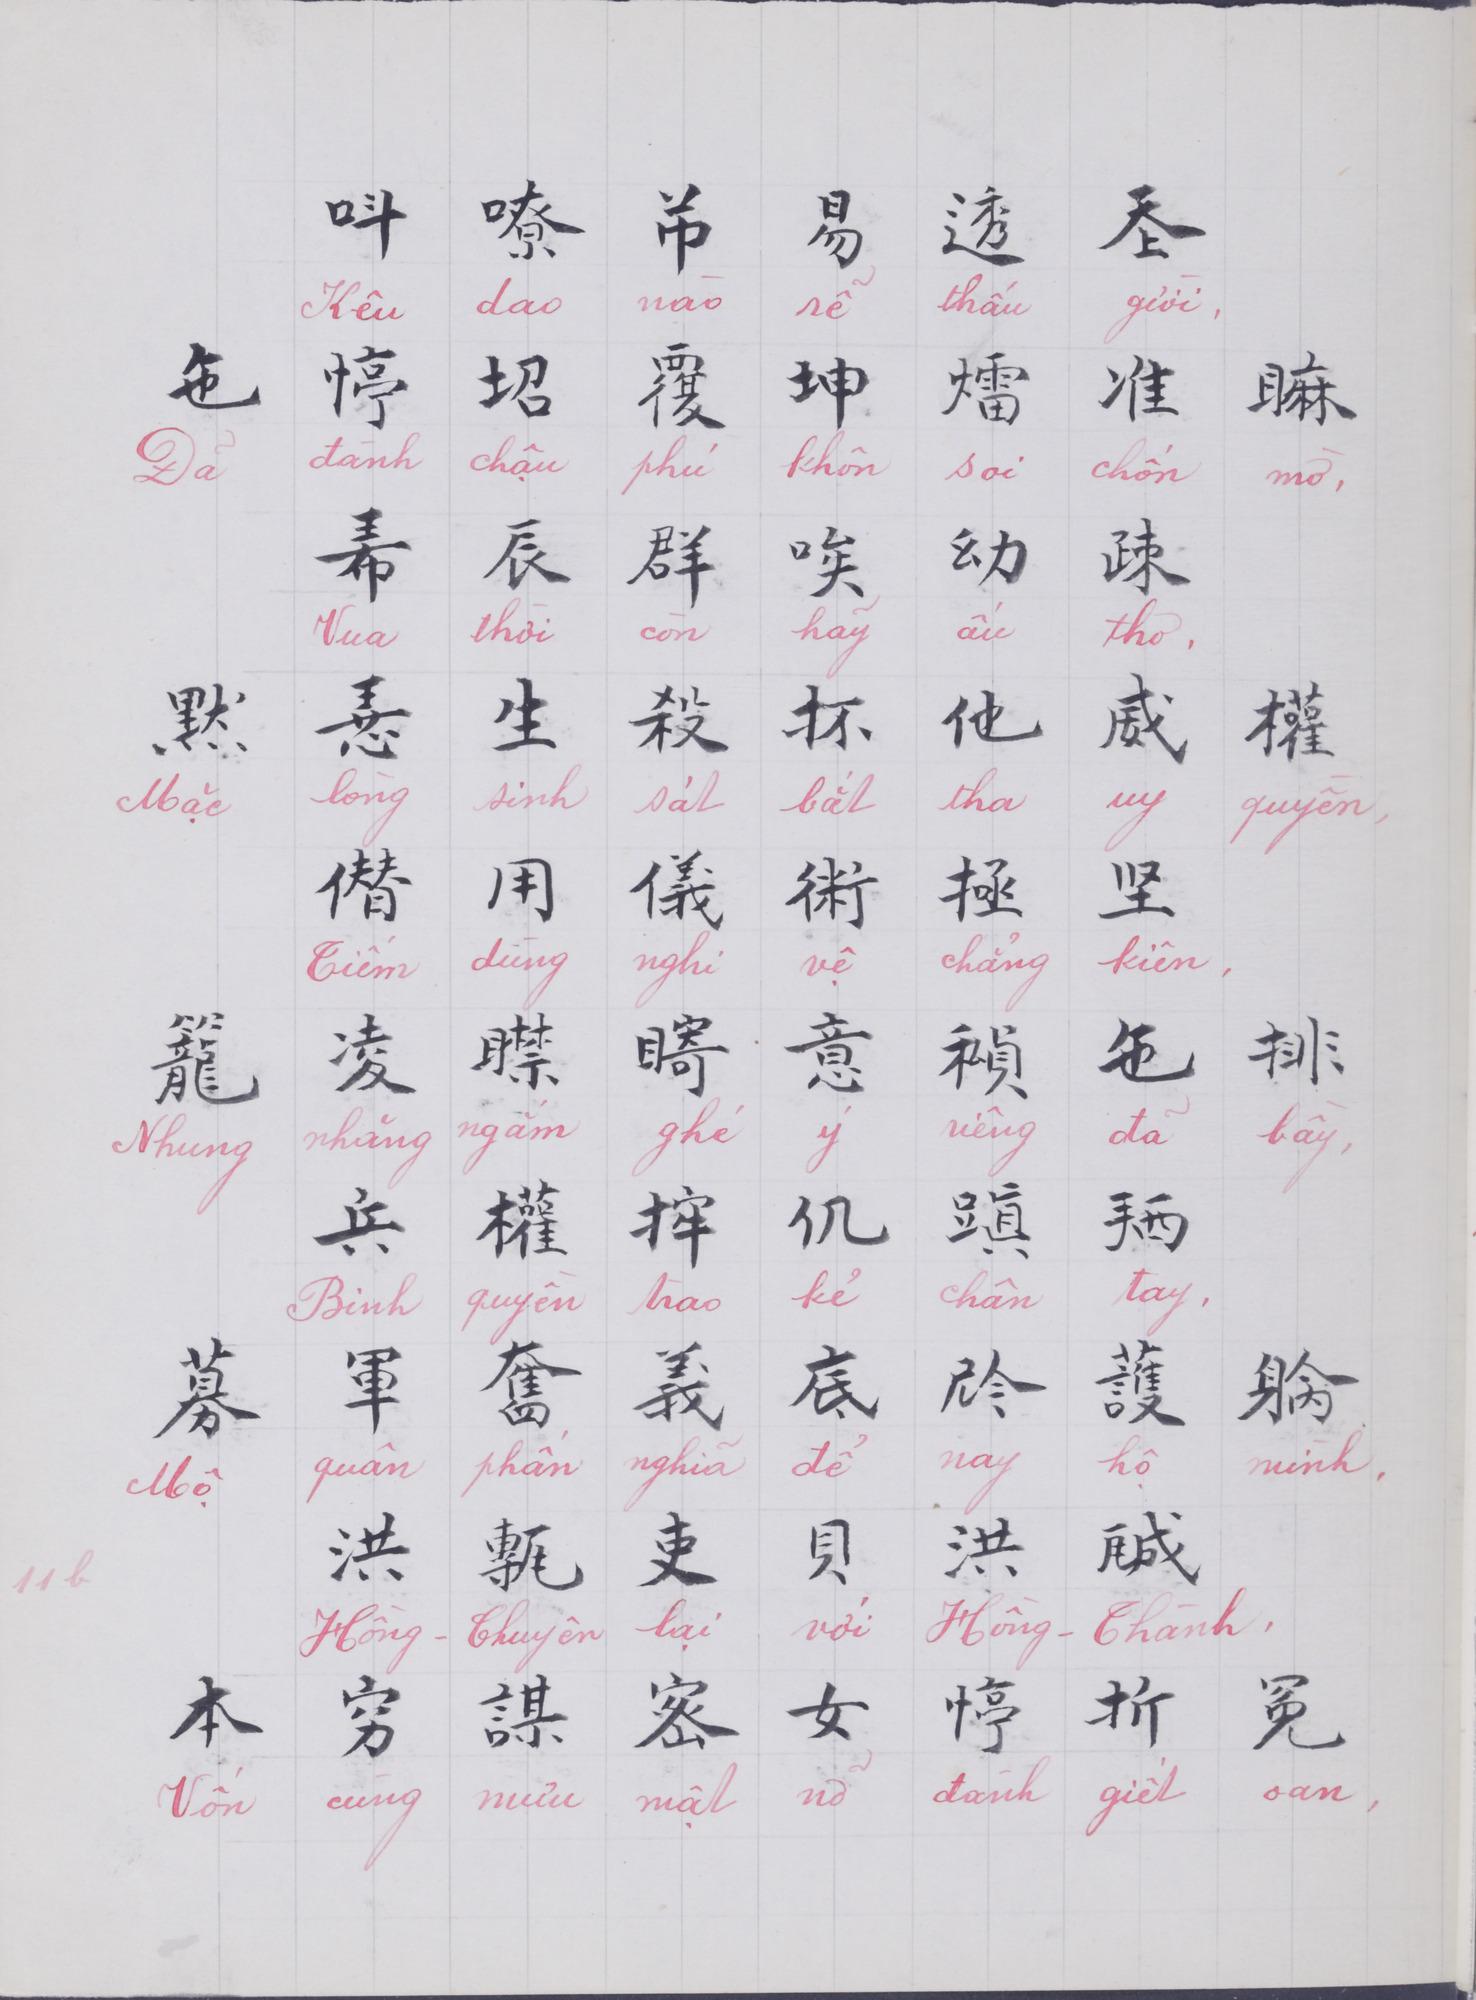 呌嘹芇易透𡗶
Kêu dao nào rễ thấu giời,
㐌𢠃坧覆坤𤒘准䁲
Đã đành chậu phú khôn soi chốn mờ,
𤤰辰群唉幼疎
Vua thời còn hãy ấu thơ,
默𢚸生殺抔他威權
Mặc lòng sinh sát bắt tha uy quyền,
僭用儀術拯坚
Tiếm dùng nghi vệ chẳng kiên,
籠凌䁮𥊘意𥘀㐌排
Nhung nhăng ngắm ghé ý riêng đã bầy,
兵權㨋仉蹎𢬣
Binh quyền trao kẻ chân tay,
募軍奮義底𫢩護𨉟
Mộ quân phấn nghĩa để nay hộ mình,
洪𡀯吏貝洪誠
Hồng-Chuyên lại với Hồng-Thành,
本穷謀密女𢠃折冤
Vốn cùng mưu mật nỡ đành giết oan,
11b